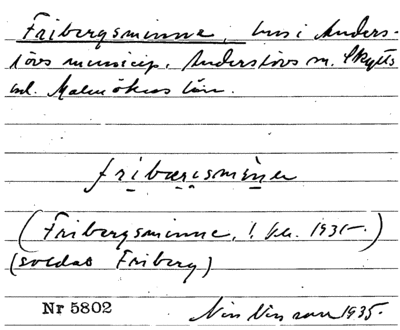 Fribergsminne, hus i Anders-
lövs municip. Anderslövs sn. Skytts
hd. Malmöhus län.
fribærcsmìne
(Fribergsminne, J. 1931–)
(soldat Friberg)
Nr 5802
Nils Nilsson 1935.